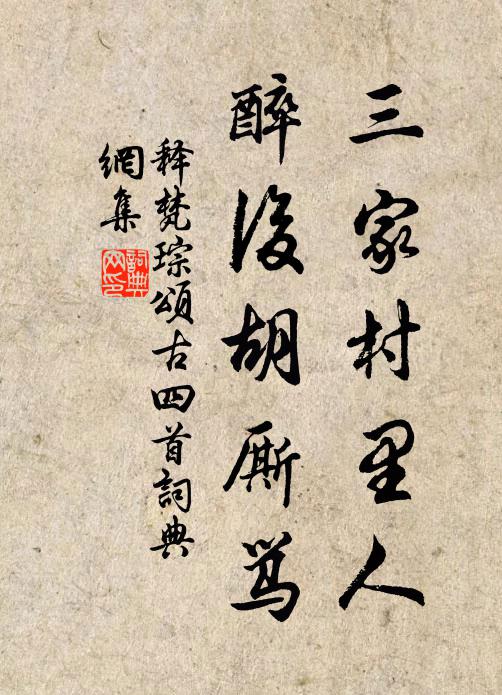 三家村里人
醉後胡厮骂
释梵琮頌古四首詞典
網集
詞典
网印